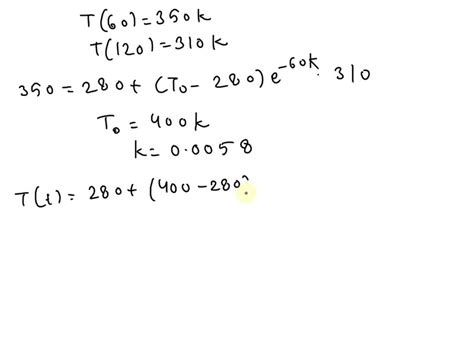 T(60)=350k
T(120)=310k
350=280+(T₀-280)e^-60k. 310
T₀=400k
k=0.0058
T(t)=280+(400-280)